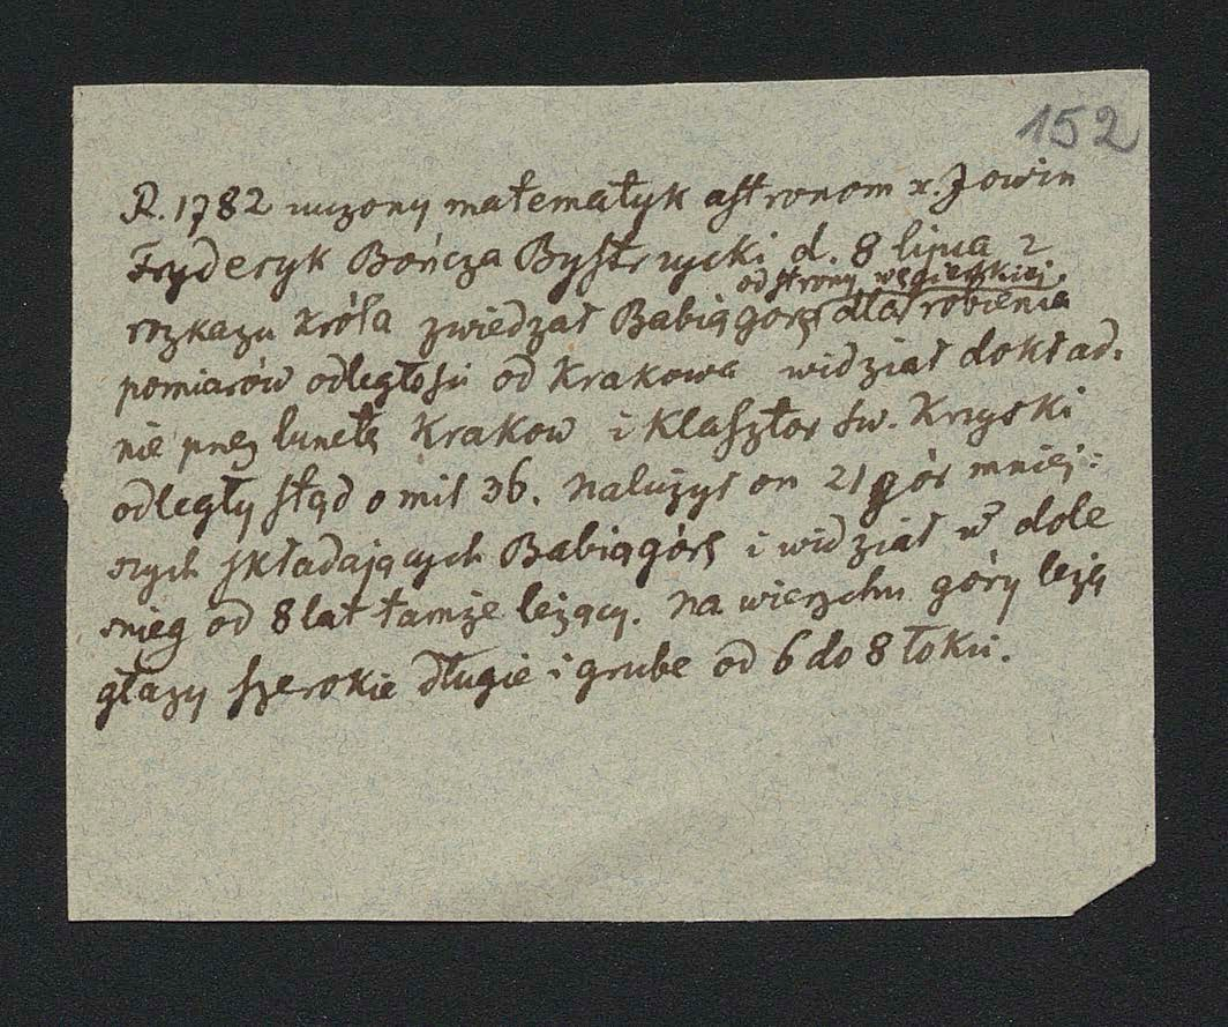 152
R. 1782 uczony matematyk astronom x. Jowin
Fryderyk Bończa Bystrzycki d. 8 lipca z
od strony węgierskiej
rozkazu króla zwiedzał Babiągorę dla robienia
pomiarów odległości od Krakowa widział dokład.
nie przez lunetę Krakow i klasztor św. Krzyski
odległy stąd o mil 36. Naliczył on 21 gór mniej:
szych składających Babiągórę i widział w dole
snieg od 8 lat tamże leżący. Na wierzchu góry leżą
głazy szerokie długie i grube od 6 do 8 łokci.